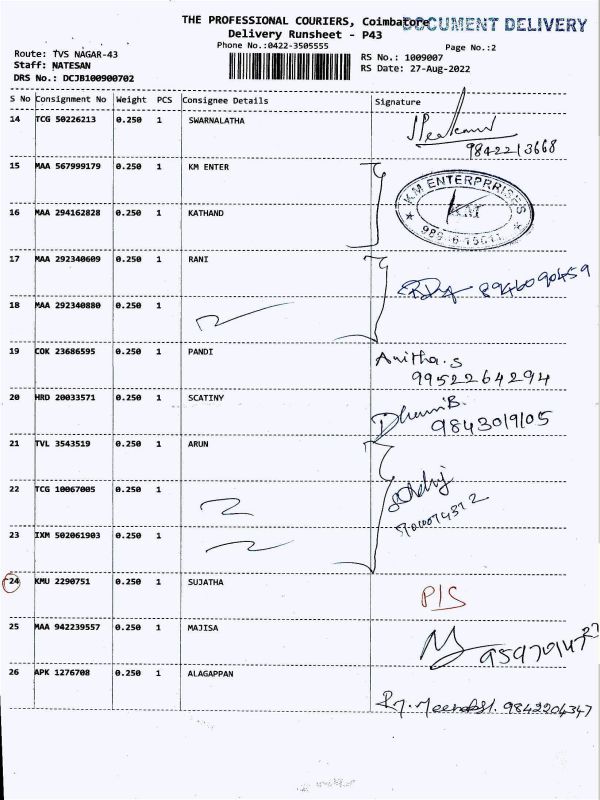 THE PROFESSIONAL COURIERS, Coimbatore
DOCUMENT DELIVERY
Delivery Runsheet - P43
Phone No.:0422-3505555
Page No.:2
Route: TVS NAGAR-43
RS No.: 1009007
Staff: NATESAN
RS Date: 27-Aug-2022
DRS No.: DCJB100900702
S No Consignment No Weight PCS Consignee Details Signature
14 TCG 50226213 0.250 1 SWARNALATHA
9842213668
15 MAA 567999179 0.250 1 KM ENTER
KM ENTERPRRISES
KM
16 MAA 294162828 0.250 1 KATHAND
17 MAA 292340609 0.250 1 RANI
8946090459
18 MAA 292340880 0.250 1
19 COK 23686595 0.250 1 PANDI
Anitha.S
9952264294
20 HRD 20033571 0.250 1 SCATINY
9843019105
21 TVL 3543519 0.250 1 ARUN
22 TCG 10067005 0.250 1
23 IXM 502061903 0.250 1
24 KMU 2290751 0.250 1 SUJATHA
P/S
25 MAA 942239557 0.250 1 MAJISA
26 APK 1276708 0.250 1 ALAGAPPAN
9842204347